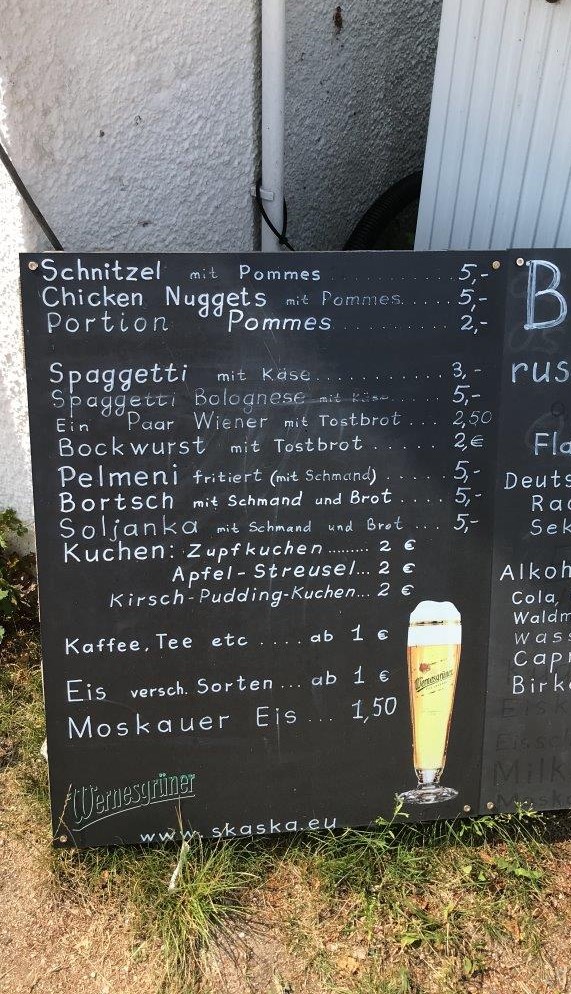 Schnitzel mit Pommes .............. 5,-
Chicken Nuggets mit Pommes..... 5,-
Portion Pommes ........... 2,-
Spaggetti mit Käse............. 3,-
Spaggetti Bolognese mit Käse..... 5,-
Ein Paar Wiener mit Tostbrot .... 2,50
Bockwurst mit Tostbrot ...... 2,€
Pelmeni fritiert (mit Schmand) ..... 5,-
Bortsch mit Schmand und Brot .... 5,-
Soljanka mit Schmand und Brot .... 5,-
Kuchen: Zupfkuchen ......... 2 €
Apfel-Streusel... 2 €
Kirsch-Pudding-Kuchen... 2 €
Kaffee, Tee etc .... ab 1 €
Eis versch. Sorten ... ab 1 €
Moskauer Eis ... 1,50
Wernesgrüner
Wernesgrüner
www.skaska.eu
B
rus
Fla
Deuts
Sek
Alkoh
Cola,
Waldm
Wass
Capr
Birk
Eisk
Eissc
Milk
Mosk